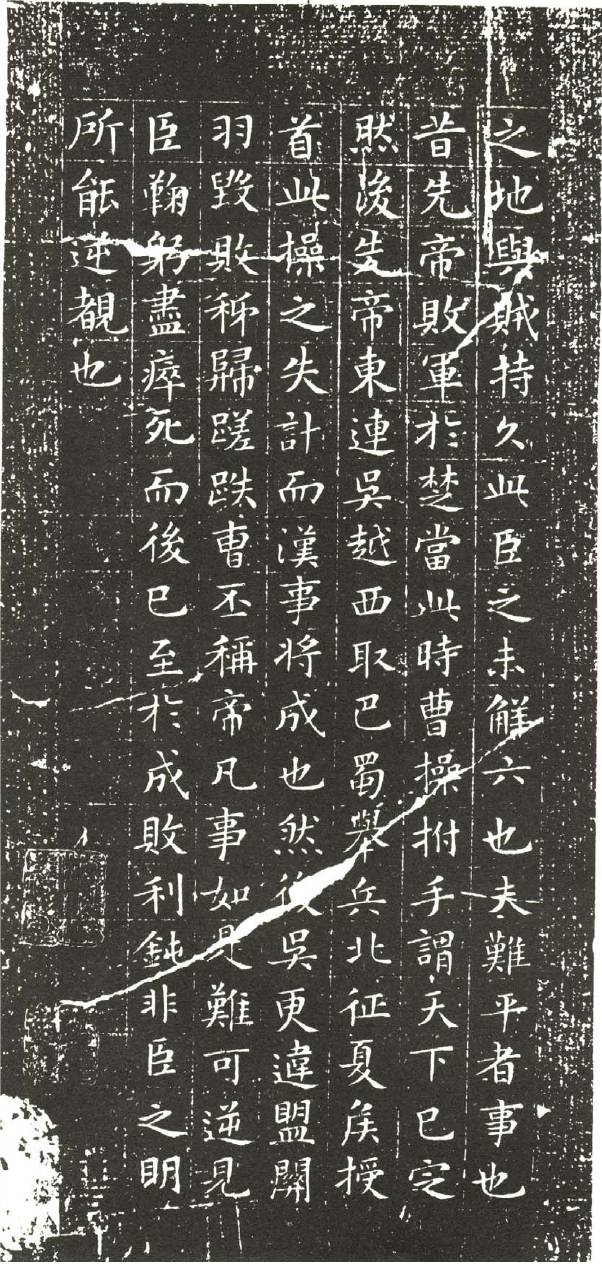 之地與賊持久此臣之未解六也夫難平者事也
昔先帝敗軍於楚當此時曹操拊手謂天下已定
然後先帝東連吳越西取巴蜀舉兵北征夏侯授
首此操之失計而漢事将成也然後吳更違盟關
羽毀敗秭歸蹉跌曹丕稱帝凡事如是難可逆見
臣鞠躬盡瘁死而後已至於成敗利鈍非臣之明
所能逆覩也